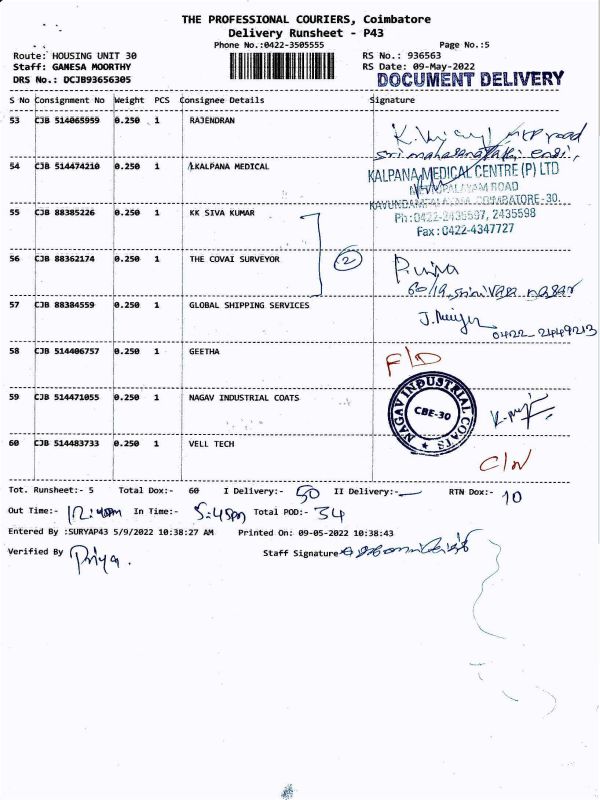 THE PROFESSIONAL COURIERS, Coimbatore
Delivery Runsheet - P43
Phone No.:0422-3505555
Page No.:5
Route: HOUSING UNIT 30
RS No.: 936563
Staff: GANESA MOORTHY
RS Date: 09-May-2022
DRS No.: DCJB93656305
DOCUMENT DELIVERY
S No Consignment No Weight PCS Consignee Details Signature
53 CJB 514065959 0.250 1 RAJENDRAN
54 CJB 514474210 0.250 1 KALPANA MEDICAL
KALPANA MEDICAL CENTRE (P) LTD
COIMBATORE-30.
Ph:0422-2435597, 2435598
Fax: 0422-4347727
55 CJB 88385226 0.250 1 KK SIVA KUMAR
2
56 CJB 88362174 0.250 1 THE COVAI SURVEYOR
60/19, srinivasa nagar
57 CJB 88384559 0.250 1 GLOBAL SHIPPING SERVICES
0422 2449213
58 CJB 514406757 0.250 1 GEETHA
F/D
59 CJB 514471055 0.250 1 NAGAV INDUSTRIAL COATS
NAGAV INDUSTRIAL COATS
CBE-30
60 CJB 514483733 0.250 1 VELL TECH
C/N
Tot. Runsheet:- 5 Total Dox:- 60 I Delivery:- 50 II Delivery:- RTN Dox:- 10
Out Time:- 12:40pm In Time:- 5:45pm Total POD:- 34
Entered By :SURYAP43 5/9/2022 10:38:27 AM Printed On: 09-05-2022 10:38:43
Verified By Priya.
Staff Signature